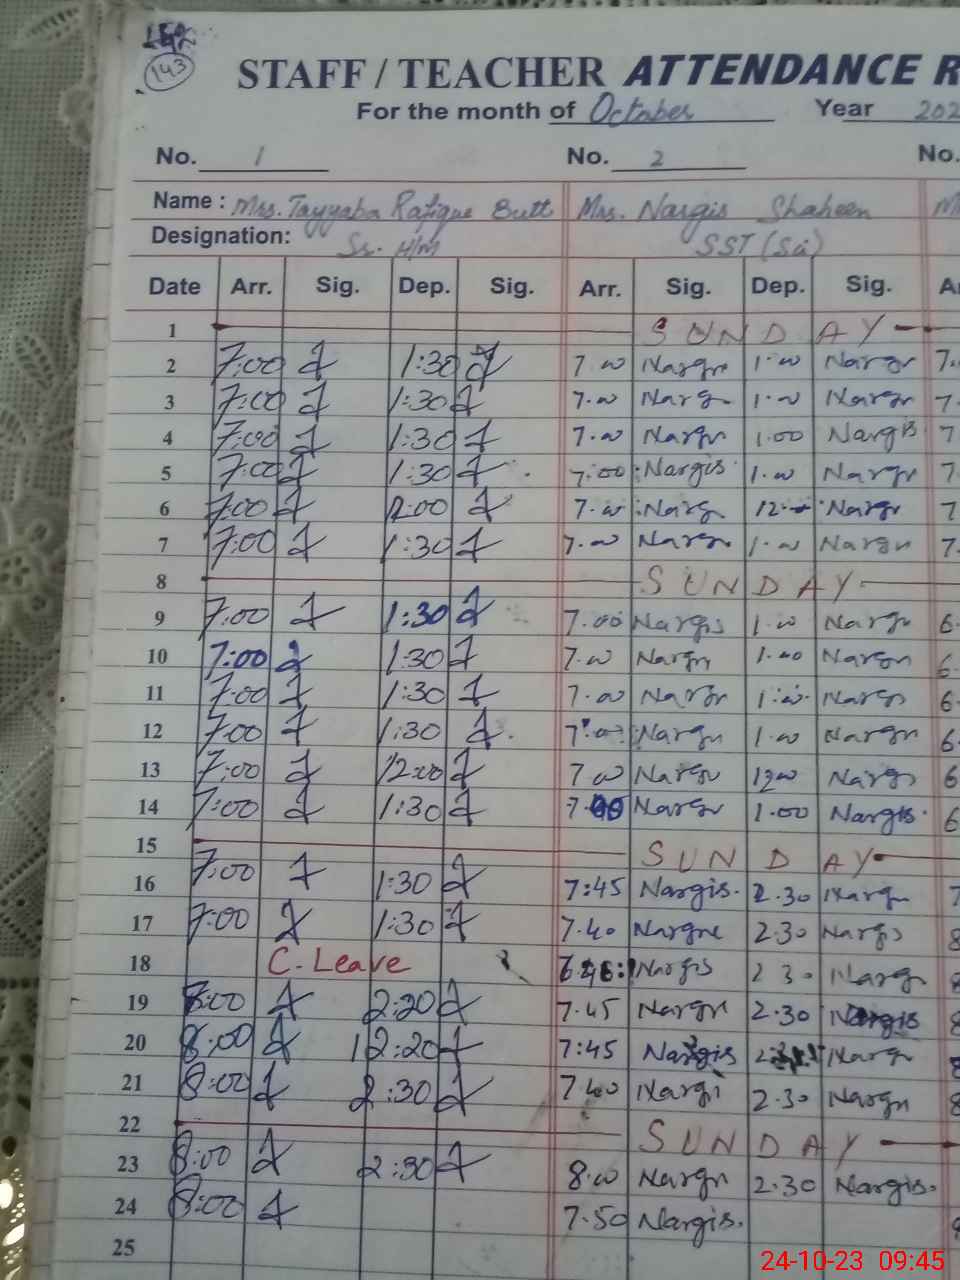 143
STAFF / TEACHER ATTENDANCE R
For the month of October Year 202
No. 1 No. 2 No.
Name : Mrs. Tayyaba Rafique Butt Mrs. Nargis Shaheen M
Designation: Sr. H/M SST (Sci)
Date Arr. Sig. Dep. Sig. Arr. Sig. Dep. Sig. A
1 SUNDAY
2 7:00 1:30 7.00 Nargis 1.00 Nargis 7.
3 7:00 1:30 7.00 Nargis 1.00 Nargis 7.
4 7:00 1:30 7.00 Nargis 1.00 Nargis 7
5 7:00 1:30 7:00 Nargis 1.00 Nargis 7.
6 7:00 12:00 7.00 Nargis 12 Nargis 7
7 7:00 1:30 7.00 Nargis 1.00 Nargis 7.
8 SUNDAY
9 7:00 1:30 7.00 Nargis 1.00 Nargis 6.
10 7:00 1:30 7.00 Nargis 1.00 Nargis 6.
11 7:00 1:30 7.00 Nargis 1.00 Nargis 6.
12 7:00 1:30 7.00 Nargis 1.00 Nargis 6.
13 7:00 12:00 7.00 Nargis 12.00 Nargis 6
14 7:00 1:30 7.00 Nargis 1.00 Nargis. 6
15 SUNDAY
16 7:00 1:30 7:45 Nargis. 2.30 Nargis 7
17 7:00 1:30 7.40 Nargis 2.30 Nargis 8
18 C. Leave Nargis 2 30 Nargis 8
19 8:00 2:20 7.45 Nargis 2.30 Nargis 8
20 8:00 12:20 7:45 Nargis Nargis 8
21 8:00 2:30 7.40 Nargis 2.30 Nargis 8
22 SUNDAY
23 8:00 2:30 8.00 Nargis 2.30 Nargis.
24 8:00 7.50 Nargis.
25
24-10-23 09:45